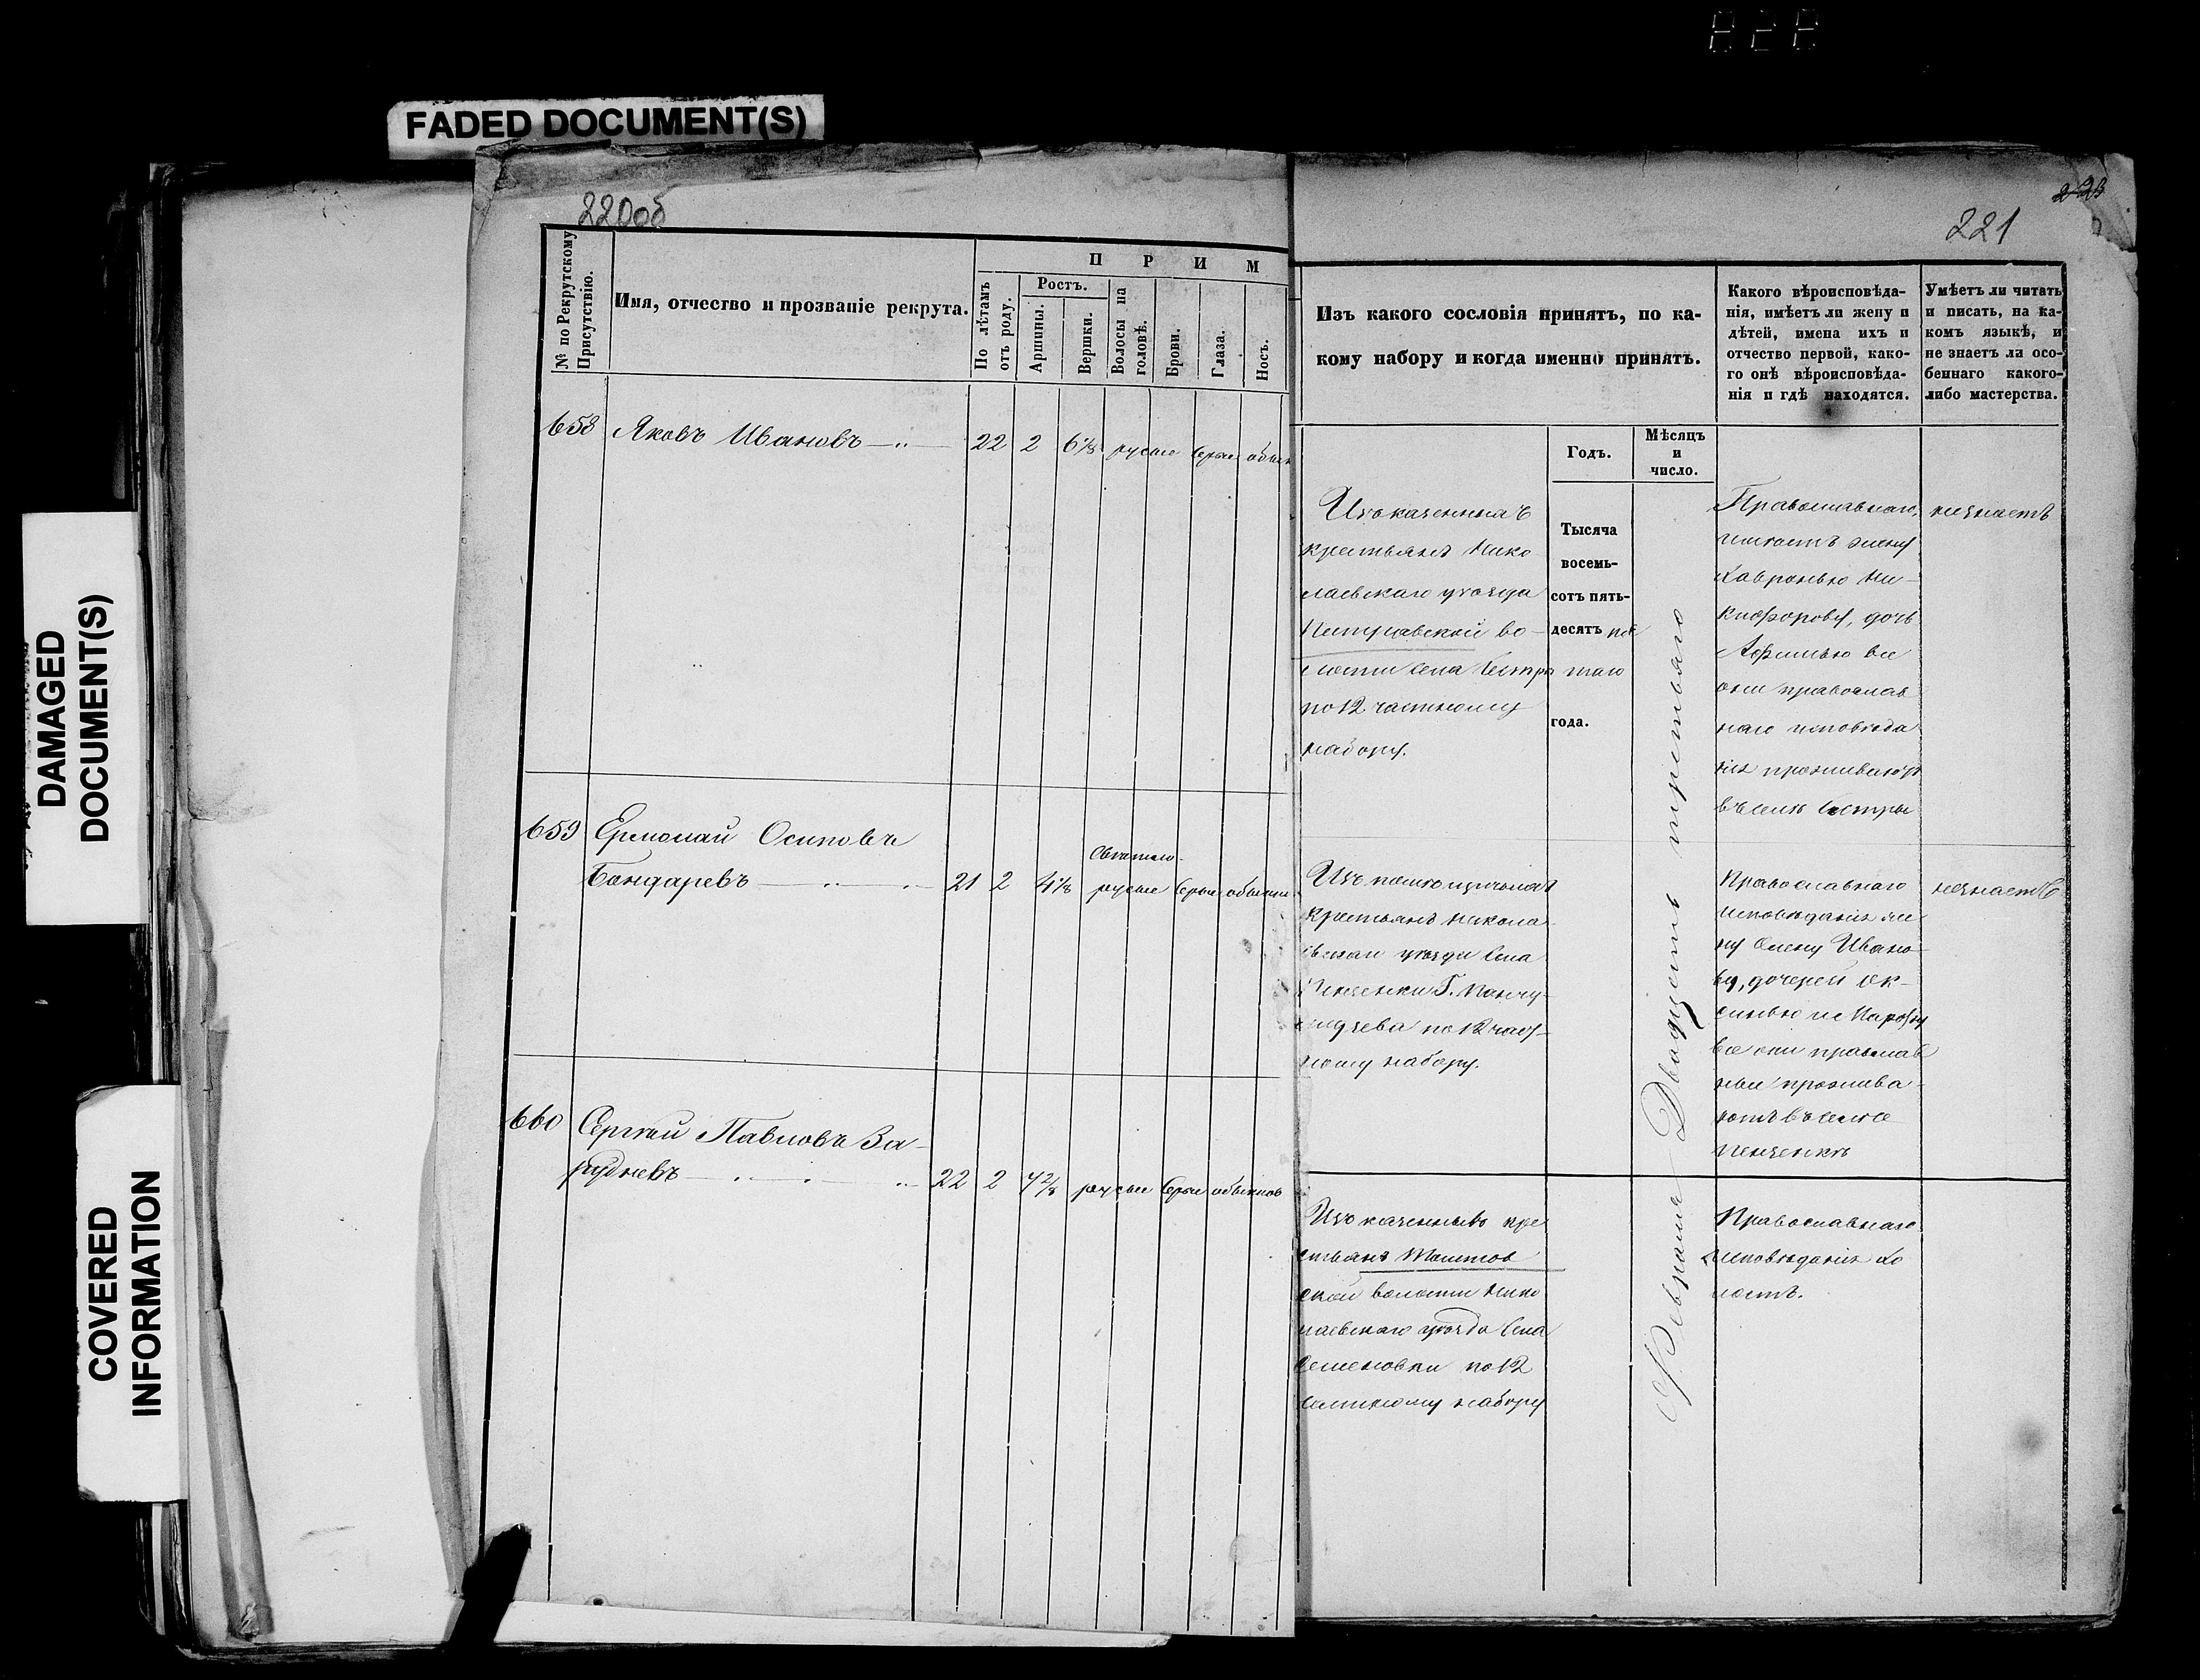 FADED DOCUMENT(S)
DAMAGED
DOCUMENT(S)
COVERED
INFORMATION
220об
№ по Рекрутскому
Присутствію.
Имя, отчество и прозваніе рекрута.
П Р И М
По лѣтамъ
отъ роду.
Ростъ.
Аршины.
Вершки.
Волосы на
головѣ.
Брови.
Глаза.
Носъ.
658 Яковъ Ивановъ 22 2 6 1/8 русые серые обыкн
659 Ермолай Осиповъ
Светло-
Бондаревъ 21 2 4 1/8 русые серые обыкнов
660 Сергѣй Павловъ За-
рудневъ 22 2 4 2/8 русые серые обыкнов
221
Изъ какого сословія принятъ, по ка-
кому набору и когда именно принятъ.
Какого вѣроисповѣда-
нія, имѣетъ ли жену и
дѣтей, имена ихъ и
отчество первой, како-
го онѣ вѣроисповѣда-
нія и гдѣ находятся.
Умѣетъ ли читать
и писать, на ка-
комъ языкѣ, и
не знаетъ ли осо-
беннаго какого-
либо мастерства.
Годъ.
Мѣсяцъ
и
число.
Изъ казенныхъ
крестьянъ Нико
лаевскаго уѣзда
волости села
по 12 частному
набору.
Тысяча
восемь-
сотъ пять-
десятъ пя
таго
года.
Февраля Двадцать третьяго
Православнаго,
имѣетъ жену
Хавронью Ни-
кифорову, дочь
Афимью все
они православ
наго исповѣда
нія проживаютъ
въ селѣ
незнаетъ
Изъ помѣщичьихъ
крестьянъ Никола-
евскаго уѣзда села
Пензенки Г.
по 12 част-
ному набору.
Православнаго
исповѣданія же
ну Олену Ивано-
ву, дочерей Ок-
синью и
все они православ
ные прожива-
ютъ въ селѣ
Пензенкѣ
незнаетъ
Изъ казенныхъ кре
стьянъ
ской волости Нико
лаевскаго уѣзда села
Семеновки по 12
частному набору
Православнаго
исповѣданія хо
лостъ.